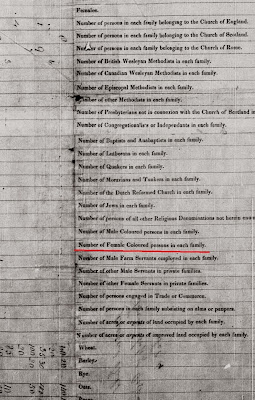 Females.
Number of persons in each family belonging to the Church of England.
Number of persons in each family belonging to the Church of Scotland.
Number of persons in each family belonging to the Church of Rome.
Number of British Wesleyan Methodists in each family.
Number of Canadian Wesleyan Methodists in each family.
Number of Episcopal Methodists in each family.
Number of other Methodists in each family.
Number of Presbyterians not in connexion with the Church of Scotland in
Number of Congregationalists or Independents in each family.
Number of Baptists and Anabaptists in each family.
Number of Lutherans in each family.
Number of Quakers in each family.
Number of Moravians and Tunkers in each family.
Number of the Dutch Reformed Church in each family.
Number of Jews in each family.
Number of persons of all other Religious Denominations not herein enum
Number of Male Coloured persons in each family.
Number of Female Coloured persons in each family.
Number of Male Farm Servants employed in each family.
Number of other Male Servants in private families.
Number of other Female Servants in private families.
Number of persons engaged in Trade or Commerce.
Number of persons in each family subsisting on alms or paupers.
Number of acres or arpents of land occupied by each family.
Number of acres or arpents of improved land occupied by each family.
Wheat.
Barley.
Rye.
Oats.